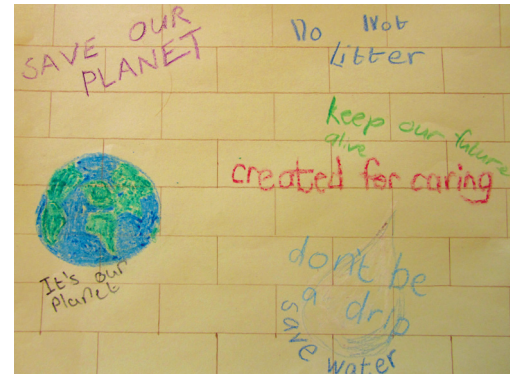 SAVE OUR
PLANET
Do Not
Litter
keep our future
alive
created for caring
It's our
Planet
don't be
a drip
save water